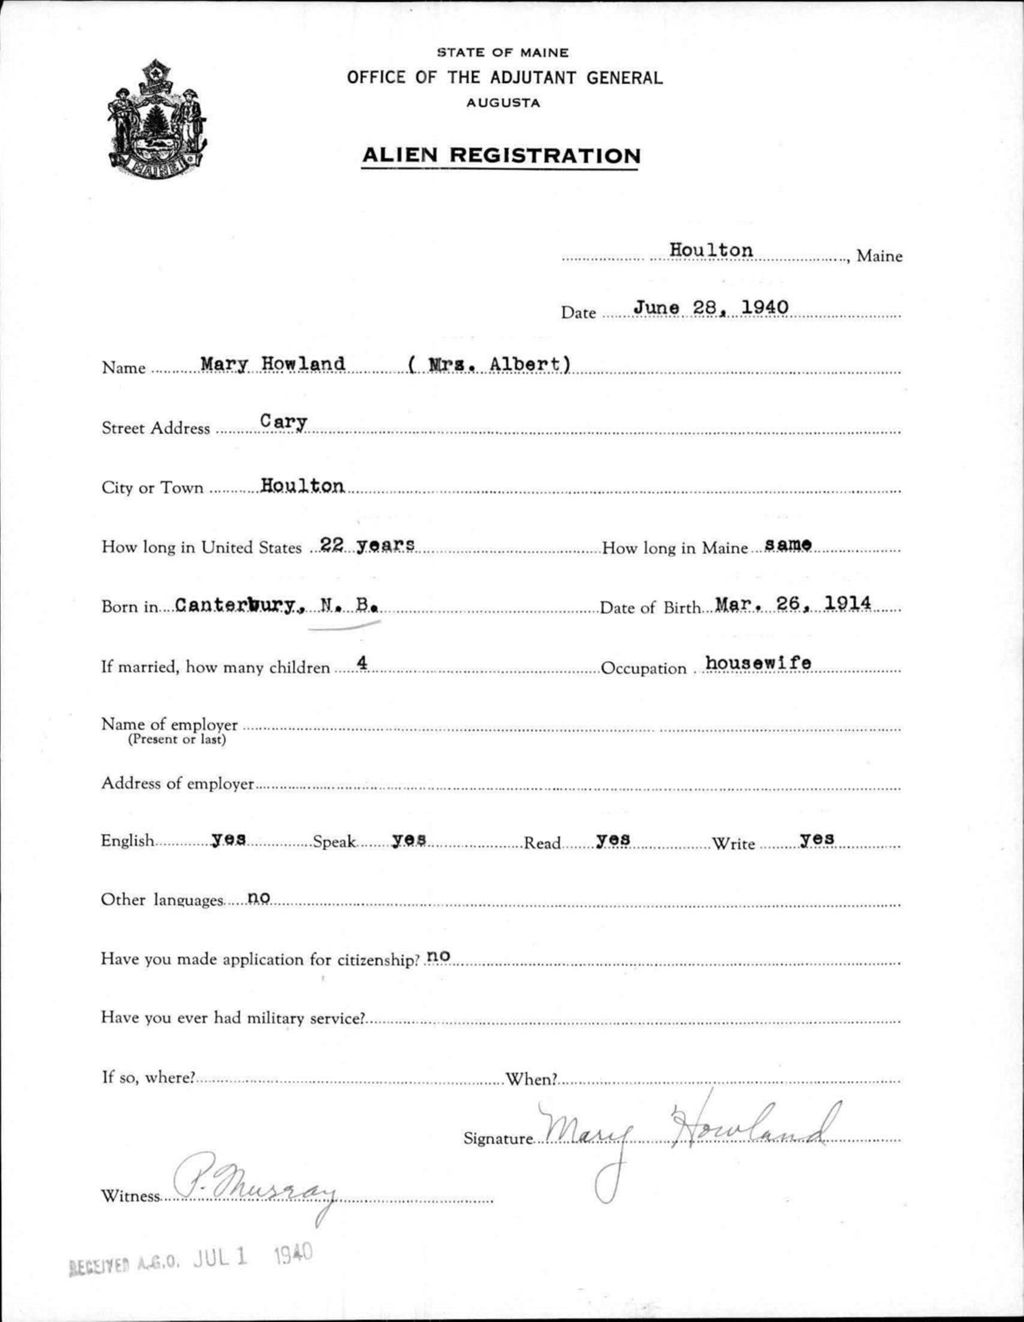 STATE OF MAINE
OFFICE OF THE ADJUTANT GENERAL
AUGUSTA
ALIEN REGISTRATION
MAINE
Houlton, Maine
Date June 28, 1940
Name Mary Howland ( Mrs. Albert)
Street Address Cary
City or Town Houlton
How long in United States 22 years How long in Maine same
Born in Canterbury, N. B. Date of Birth Mar. 26, 1914
If married, how many children 4 Occupation housewife
Name of employer
(Present or last)
Address of employer
English yes Speak yes Read yes Write yes
Other languages no
Have you made application for citizenship? no
Have you ever had military service?
If so, where? When?
Signature Mary Howland
Witness P. Murray
RECEIVED A.G.O. JUL 1 1940